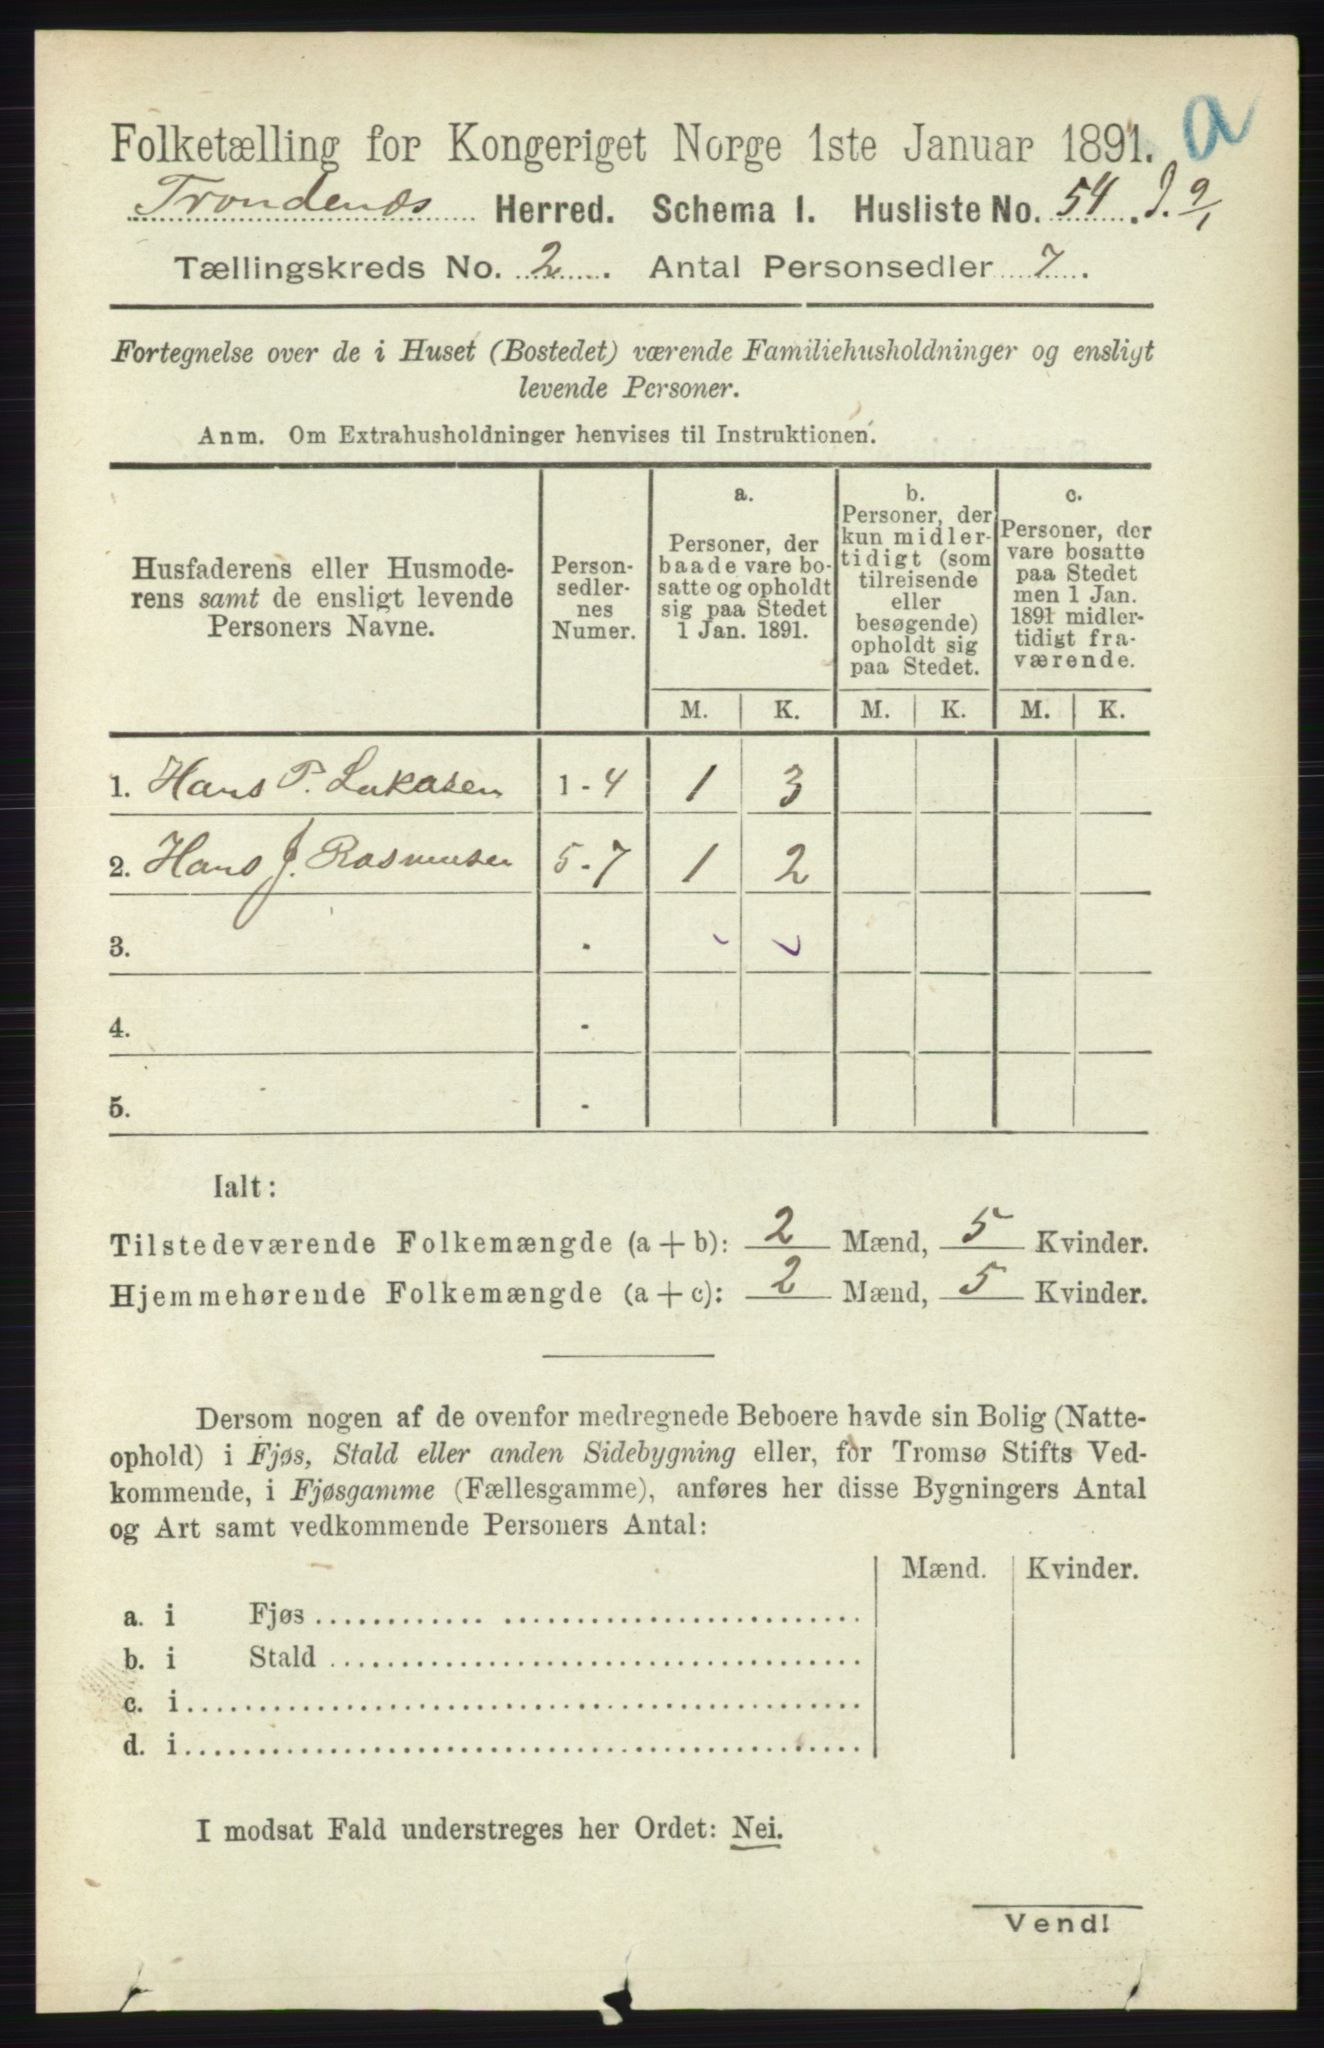 Folketælling for Kongeriget Norge 1ste Januar 1891. a
Trondenæs Herred. Schema I. Husliste No. 54. J. 9/1
Tællingskreds No. 2. Antal Personsedler 7.
Fortegnelse over de i Huset (Bostedet) værende Familiehusholdninger og ensligt
levende Personer.
Anm. Om Extrahusholdninger henvises til Instruktionen.
Husfaderens eller Husmode-
rens samt de ensligt levende
Personers Navne.
Person-
sedler-
nes
Numer.
a.
Personer, der
baade vare bo-
satte og opholdt
sig paa Stedet
1 Jan. 1891.
b.
Personer, der
kun midler-
tidigt (som
tilreisende
eller
besøgende)
opholdt sig
paa Stedet.
c.
Personer, der
vare bosatte
paa Stedet
men 1 Jan.
1891 midler-
tidigt fra-
værende.
M. K. M. K. M. K.
1. Hans P. Lukasen 1-4 1 3
2. Hans J. Rasmusen 5-7 1 2
3. -
4. -
5. -
Ialt:
Tilstedeværende Folkemængde (a + b): 2 Mænd, 5 Kvinder.
Hjemmehørende Folkemængde (a + c): 2 Mænd, 5 Kvinder.
Dersom nogen af de ovenfor medregnede Beboere havde sin Bolig (Natte-
ophold) i Fjøs, Stald eller anden Sidebygning eller, for Tromsø Stifts Ved-
kommende, i Fjøsgamme (Fællesgamme), anføres her disse Bygningers Antal
og Art samt vedkommende Personers Antal:
Mænd. Kvinder.
a. i Fjøs
b. i Stald
c. i
d. i
I modsat Fald understreges her Ordet: Nei.
Vend!